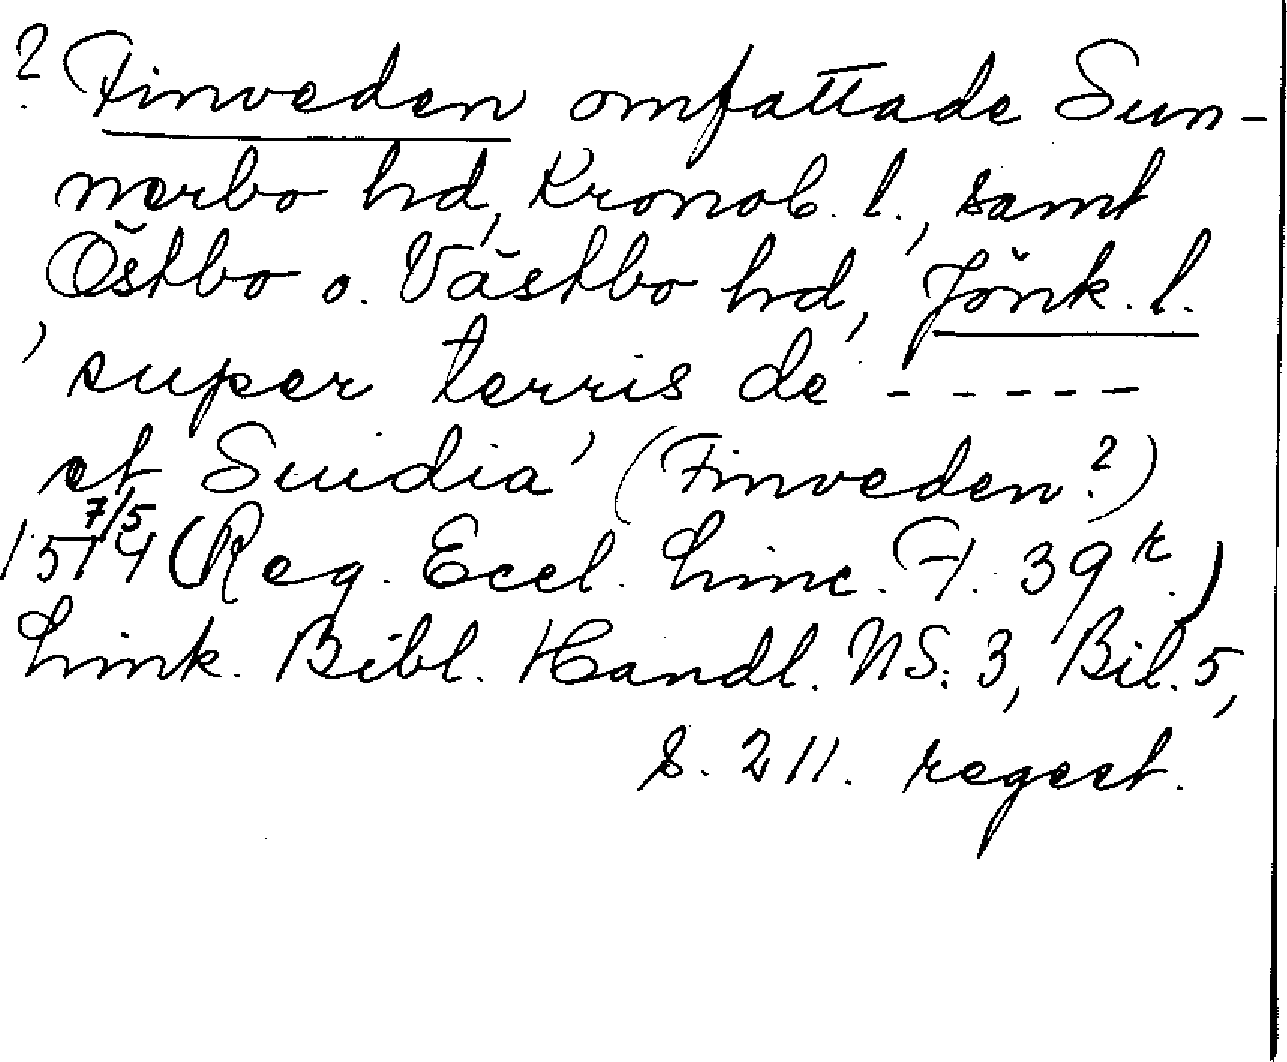 ? Finveden omfattade Sun-
nerbo hd, Kronob. l., samt
Östbo o. Västbo hd, Jönk. l.
’super terris de - - - - -
et Suidia’ (Finveden?)
7/5
1514 (Reg. Eccl. Linc. F. 39r.)
Link. Bibl. Handl. NS. 3, Bil. 5,
s. 211. regest.